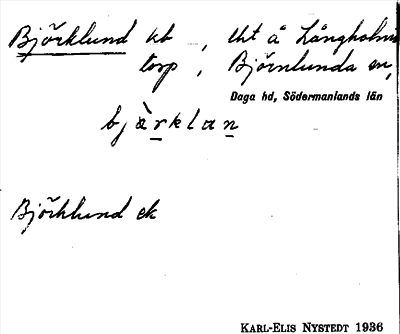 Björklund kb , tht å Långholms
torp , Björnlunda sn,
Daga hd, Södermanlands län
bjὰrklan
Björklund ek
KARL-ELIS NYSTEDT 1936